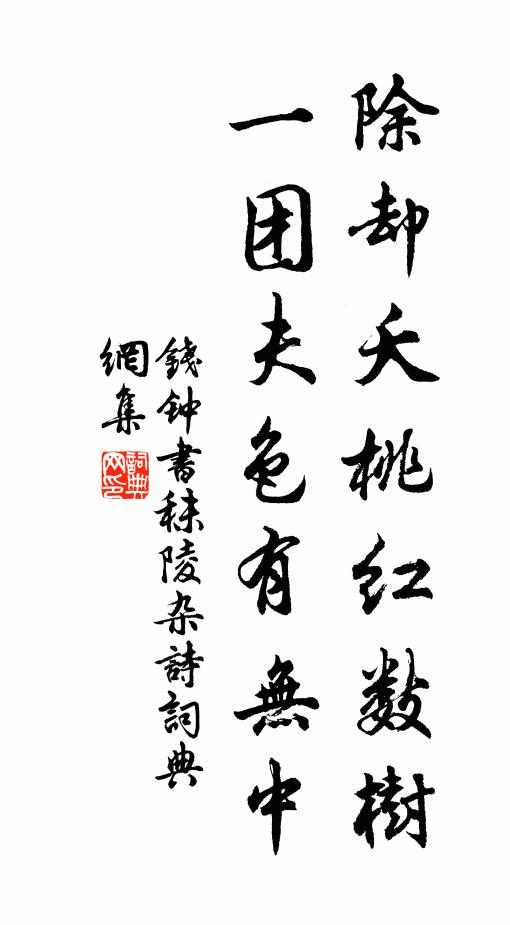 除却夭桃红数樹
一团夫色有無中
錢钟書秣陵杂詩詞典
網集
詞典网印